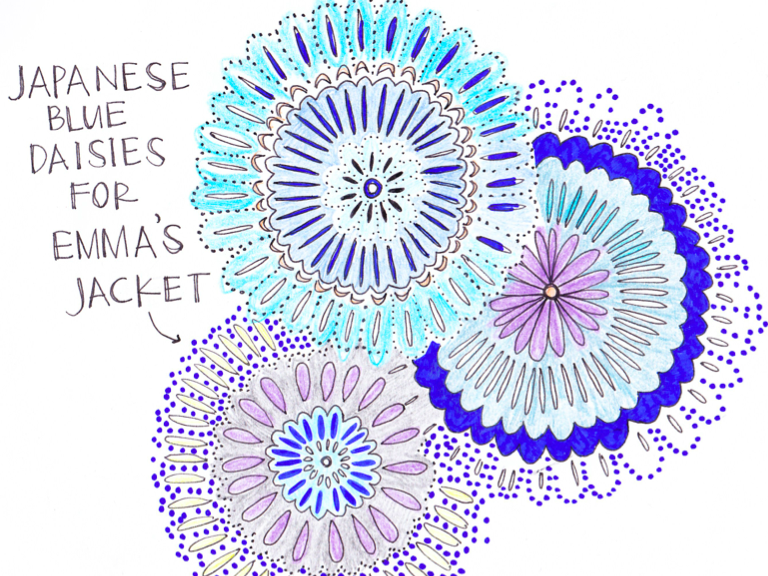 JAPANESE
BLUE
DAISIES
FOR
EMMA'S
JACKET